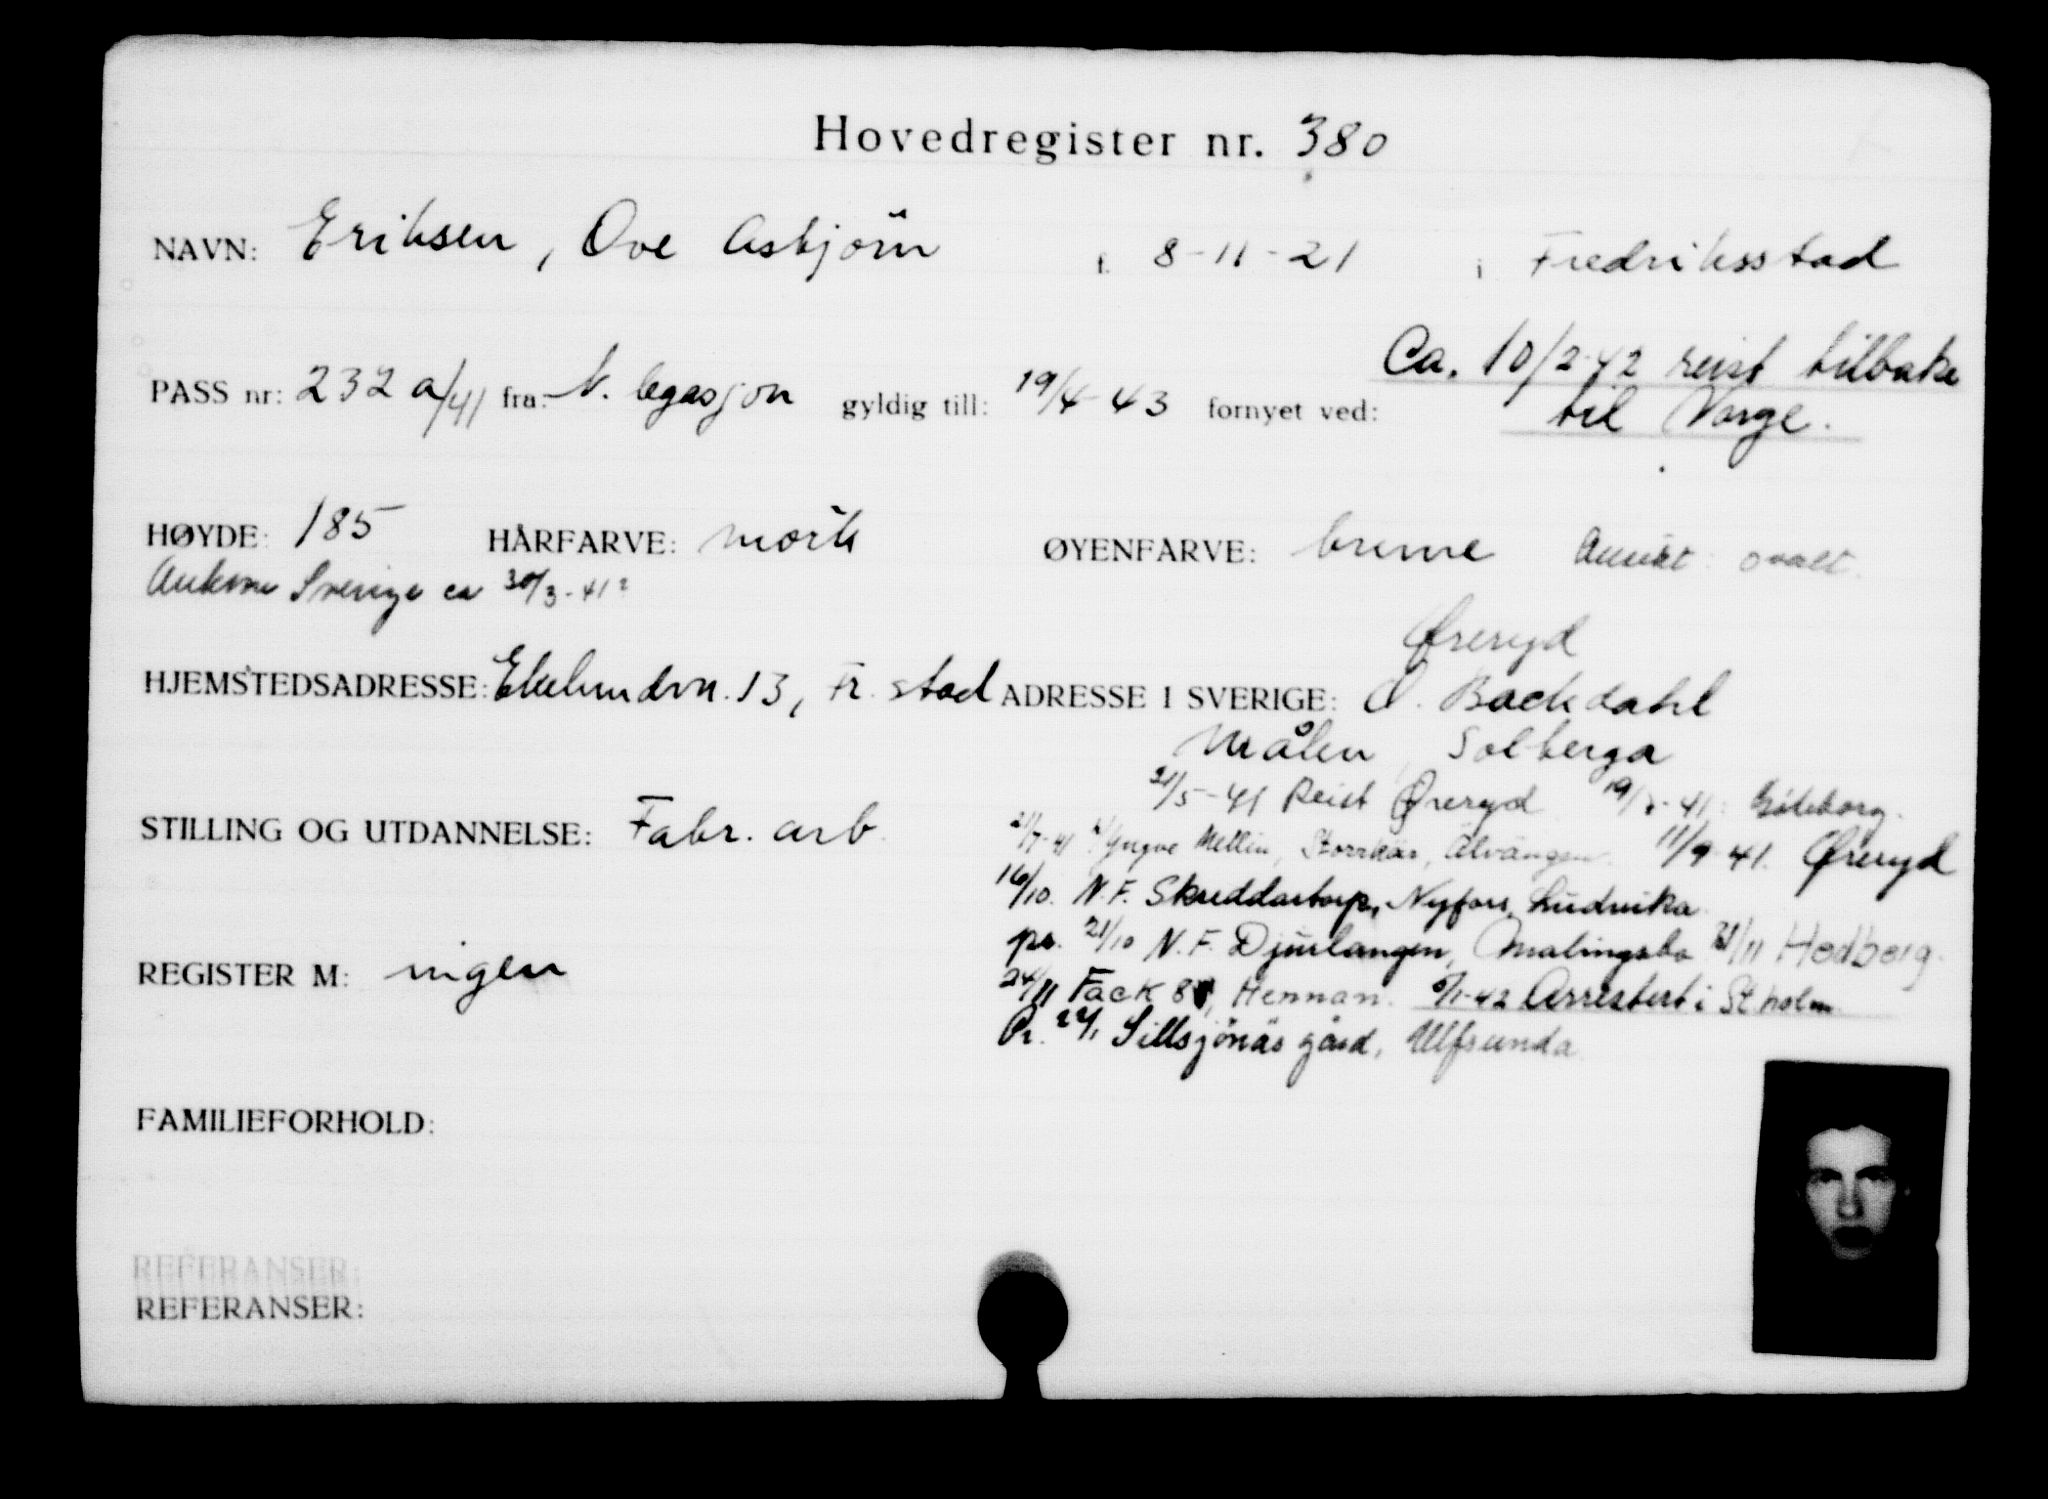 Hovedregister nr. 380
NAVN: Eriksen, Ove Asbjörn f. 8-11-21 i Fredriksstad
Ca. 10/2-42 reist tilbake
PASS nr: 232 a/41 fra: N. legasjon gyldig till: 19/4-43 fornyet ved: til Norge.
HØYDE: 185 HÅRFARVE: mörk ØYENFARVE: brune Ansikt: ovalt.
Ankom Sverige ca 30/3-41?
Øreryd
HJEMSTEDSADRESSE: Ekelundvn. 13, Fr.stad ADRESSE I SVERIGE: O. Backdahl
Målen, Solberga
21/5-41 Reist Øreryd 19/ -41: Göteborg.
STILLING OG UTDANNELSE: Fabr. arb.
21/7-41 Yngve Mellin, Storrkär, Älvängen. 11/9-41. Øreryd
16/10. N.F. Skreddartorp, Nyfors, Ludvika.
REGISTER M: ingen
pr. 21/10 N.F. Djurlangen, Malingsbo 21/11 Hedberg.
24/11 Fack 8, Hennan. /1-42 Arrestert i St.holm.
Pr. 22/1 Sillsjönäs gård, Ulfsunda
FAMILIEFORHOLD:
REFERANSER:
REFERANSER: